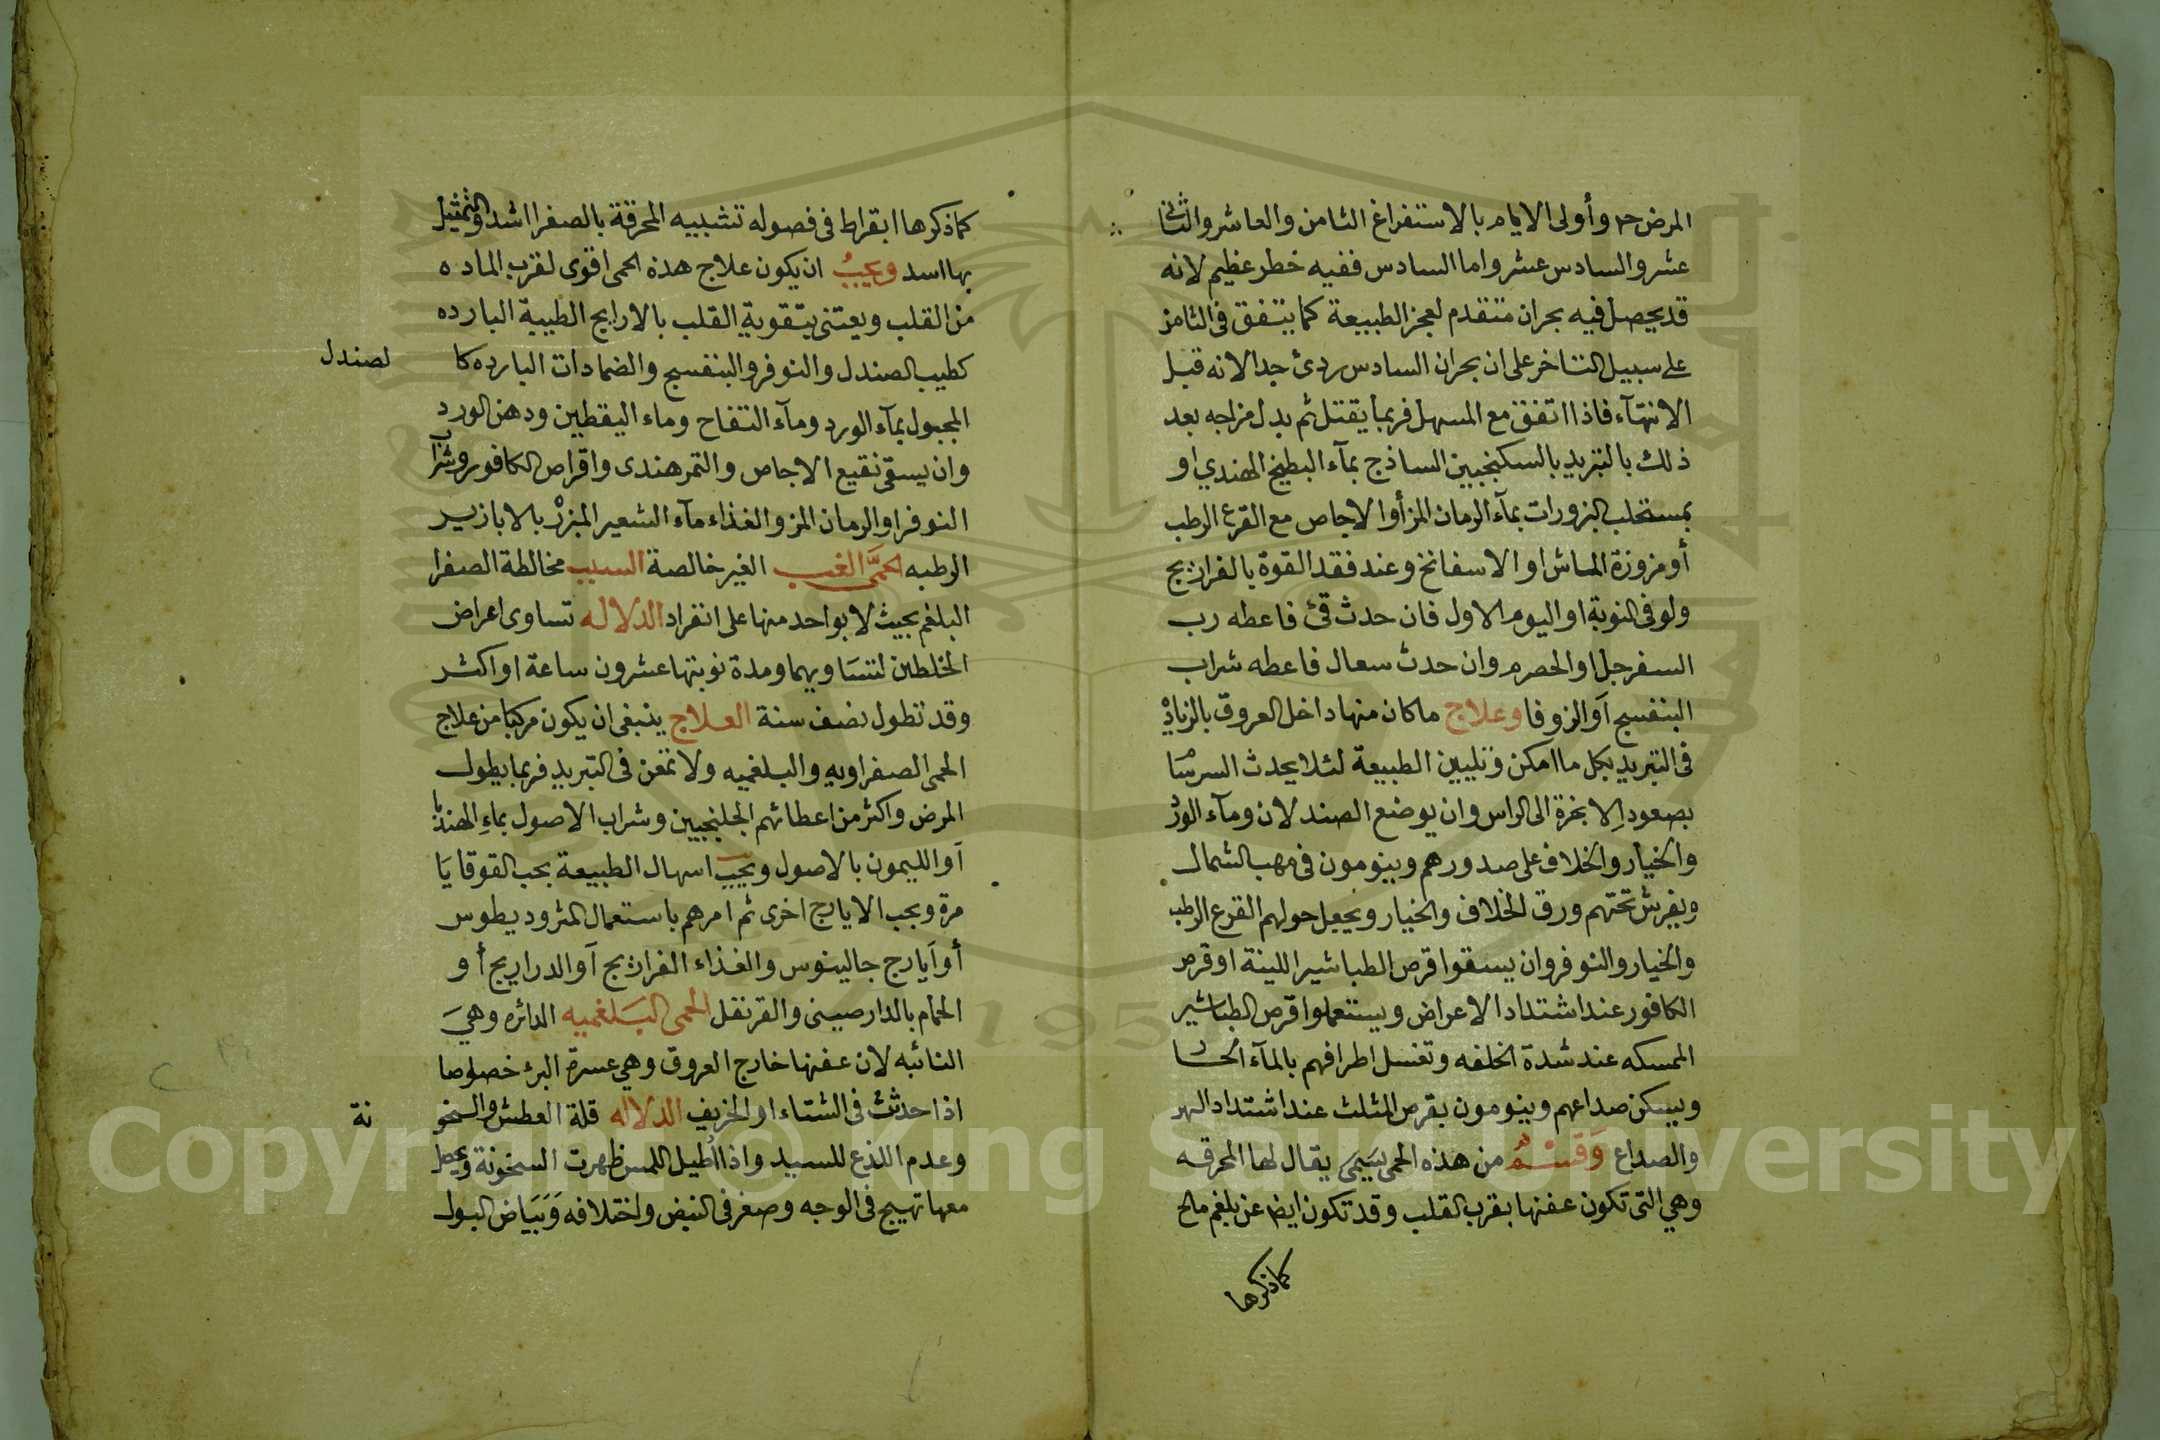 المرض ح وأولى الايام بالاستفراغ الثامن والعاشر والثانى
عشر والسادس عشر واما السادس ففيه خطر عظيم لانه
قد يحصل فيه بحران متقدم لعجز الطبيعة كما يتفق فى الثامن
على سبيل التاخر على ان بحران السادس ردئ جدا لانه قبل
الانتهآء فاذا اتفق مع المسهل فربما يقتل ثم بدل مزاجه بعد
ذلك بالتبريد بالسكنجبين الساذج بمآء البطيخ الهندي او
بمستحلب البزورات بمآء الرمان المز أوالاجاص مع القرع الرطب
أو مزوزة الماش او الاسفانخ وعند فقد القوة بالفراريج
ولو فى النوبة او اليوم الاول فان حدث قئ فاعطه رب
السفرجل او الحصرم وان حدث سعال فاعطه شراب
البنفسج أو الزوفا وعلاج ماكان منها داخل العروق بالزيادة
فى التبريد بكل ما امكن وتليين الطبيعة لئلا يحدث السرسام
بصعود الابخرة الى الراس وان يوضع الصندلان ومآء الورد
والخيار والخلاف على صدورهم وينومون فى مهب الشمال
ويفرش تحتهم ورق الخلاف والخيار ويجعل حولهم القرع الرطب
والخيار والنوفر وان يسقوا قرص الطباشير اللينة او قرص
الكافور عند اشتداد الاعراض ويستعملوا قرص الطباشير
الممسكه عند شدة الخلفه وتغسل اطرافهم بالمآء الحار
ويسكن صداعهم وينومون بقرص المثلث عند اشتداد السهر
والصداع وَقسْمٌ من هذه الحمى يسمى يقال لها المحرقه
وهي التى تكون عفنها بقرب القلب وقد تكون ايضا عن بلغم مالح
كما ذكرها
كما ذكرها ابقراط فى فصوله تشبيه المحرقة بالصفرا اشد والتمثيل
بها اسد ويجبُ ان يكون علاج هذه الحمى اقوى لقرب الماده
من القلب ويعتنى بتقوية القلب بالارايح الطيبة البارده
كطيب الصندل والنوفر والبنفسج والضمادات البارده كا
لصندل
المجبول بمآء الورد ومآء التفاح وماء اليقطين ودهن الورد
وان يسقى نقيع الاجاص والتمرهندى واقراص الكافور وشراب
النوفر او الرمان المز والغذاء مآء الشعير المبزر بالابازير
الرطبه الحمَّى الغب الغير خالصة السبب مخالطة الصفرا
البلغم بحيث لا بواحد منها على انفراد الدلاله تساوى اعراض
الخلطين لتساويهما ومدة نوبتها عشرون ساعة او اكثر
وقد تطول نصف سنة العلاج ينبغى ان يكون مركبا من علاج
الحمى الصفراويه والبلغميه ولا تمعن فى التبريد فربما يطول
المرض واكثر من اعطائهم الجلنجبين وشراب الاصول بماء الهندبا
أو الليمون بالاصول ويجب اسهال الطبيعة بحب القوقايا
مرة وبحب الايارج اخرى ثم امرهم باستعمال المثروديطوس
أو أيارج جالينوس والغذاء الفراريج أو الدراريج أو
الحمام بالدارصينى والقرنفل الحمى البلغميه الدائره وهيَ
النائبه لان عفنها خارج العروق وهي عسرة البرء خصوصا
اذا حدثت فى الشتاء او الخريف الدلاله قلة العطش والسخو
نة
وعدم اللذع للسيد واذا اطيل اللمس ظهرت السخونة ويحصل
معها تهيج فى الوجه وصغر فى النبض واختلافه وَبَيَاض البول
Copyright © King Saud University
1957